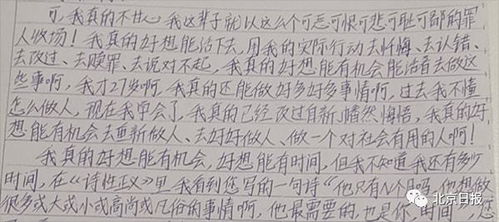 可我真的不甘心我这辈子就以这么个可恶可恨可悲可耻可鄙的罪
人收场!我真的好想能活下去,用我的实际行动去忏悔、去认错、
去改过、去赎罪、去说对不起,我真的好想能有机会能活着去做这
些事啊,我才27岁啊,我真的还能做好多好多事情啊,过去我不懂
怎么做人,现在我学会了,我真的已经改过自新、幡然悔悟,我真的好
想能有机会去重新做人、去好好做人、做一个对社会有用的人啊!
我真的好想能有机会,好想能有时间,但我不知道我还有多少
时间,在《诗性正义》里我看到您写的一句诗“他只有N个日吗,他想做
很多或大或小或高尚或凡俗的事情啊,他最需要的,也是你,时间”,
北京日报